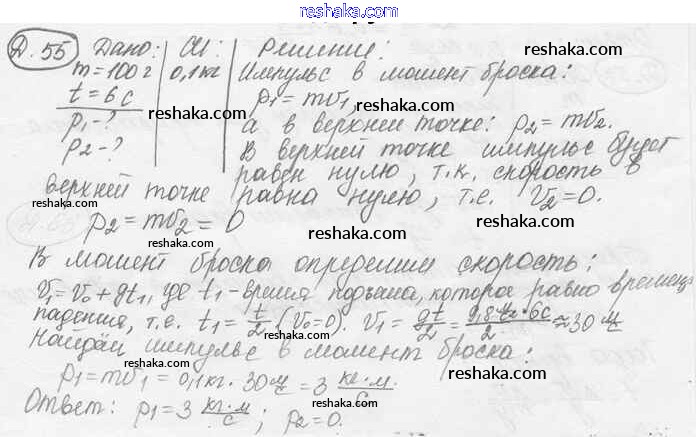 reshaka.com
Д. 55 Дано: СИ: Решение:
m=100г 0,1кг Импульс в момент броска:
t=6с p₁=mv₁,
p₁-? а в верхней точке: p₂=mv₂.
p₂-? В верхней точке импульс будет
равен нулю, т.к. скорость в
верхней точке равна нулю, т.е. v₂=0.
p₂=mv₂=0
В момент броска определим скорость:
v₁=v₀+gt₁, где t₁-время подъема, которое равно времени
падения, т.е. t₁=t/2 (v₀=0). v₁=gt/2=9,8 м/с²·6с/2≈30 м/с
Найдём импульс в момент броска:
p₁=mv₁=0,1кг·30 м/с=3 кг·м/с
Ответ: p₁=3 кг·м/с; p₂=0.
reshaka.com
reshaka.com
reshaka.com
reshaka.com
reshaka.com
reshaka.com
reshaka.com
reshaka.com
reshaka.com
reshaka.com
reshaka.com
reshaka.com
reshaka.com
reshaka.com